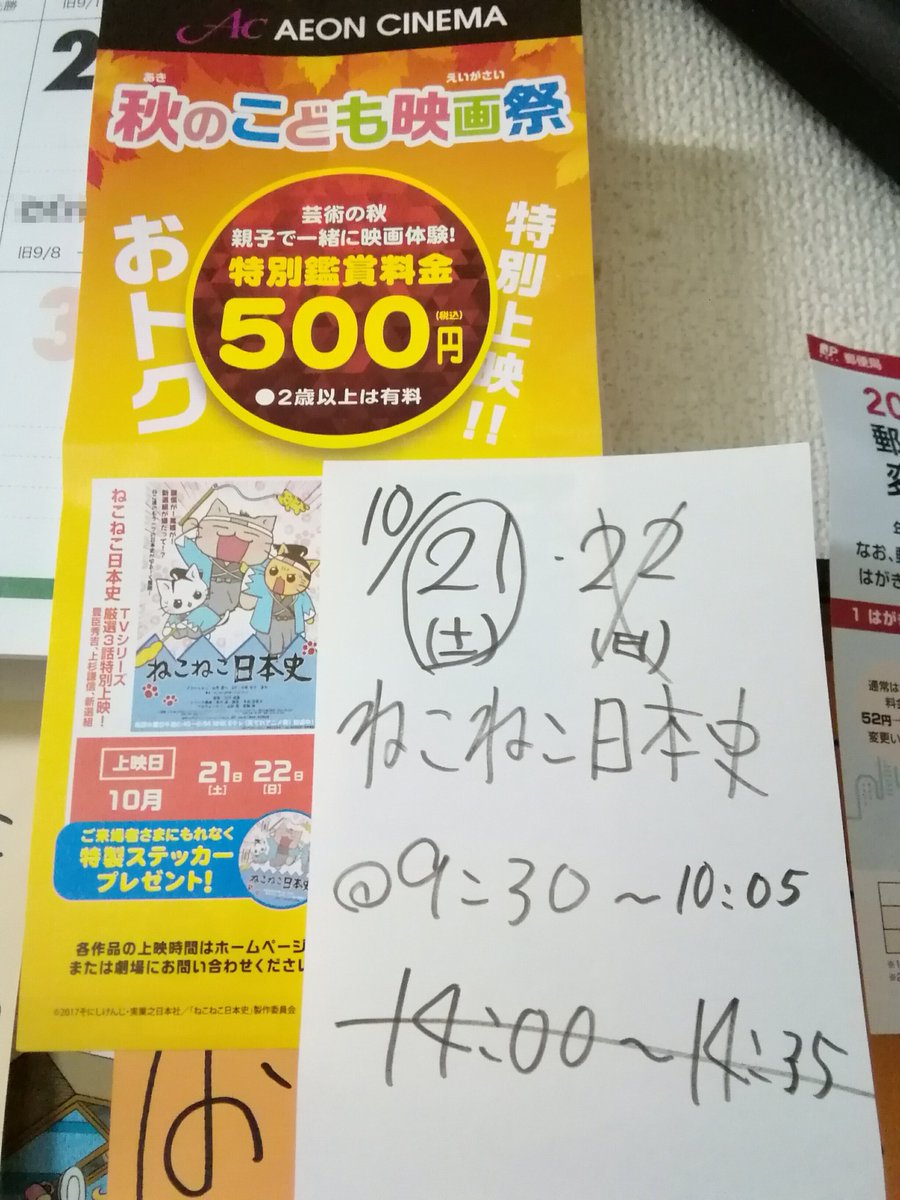 旧9/1
2
旧9/8
3
AC AEON CINEMA
あき えいがさい
秋のこども映画祭
おトク
特別上映!!
芸術の秋
親子で一緒に映画体験!
特別鑑賞料金
500円
(税込)
●2歳以上は有料
ねこねこ日本史
TVシリーズ
厳選3話特別上映!
豊臣秀吉、上杉謙信、新選組
ねこねこ日本史
上映日
10月
21日[土] 22日[日]
ご来場者さまにもれなく
特製ステッカー
プレゼント!
ねこねこ日本史
各作品の上映時間はホームページ
または劇場にお問い合わせくださ
©2017そにしけんじ・実業之日本社/「ねこねこ日本史」製作委員会
10/21・22
(土) (日)
ねこねこ日本史
@9:30~10:05
14:00~14:35
JP 郵便局
20
郵
変
なお、
はがき
1 はが
通常は
料金
52円
変更い
な